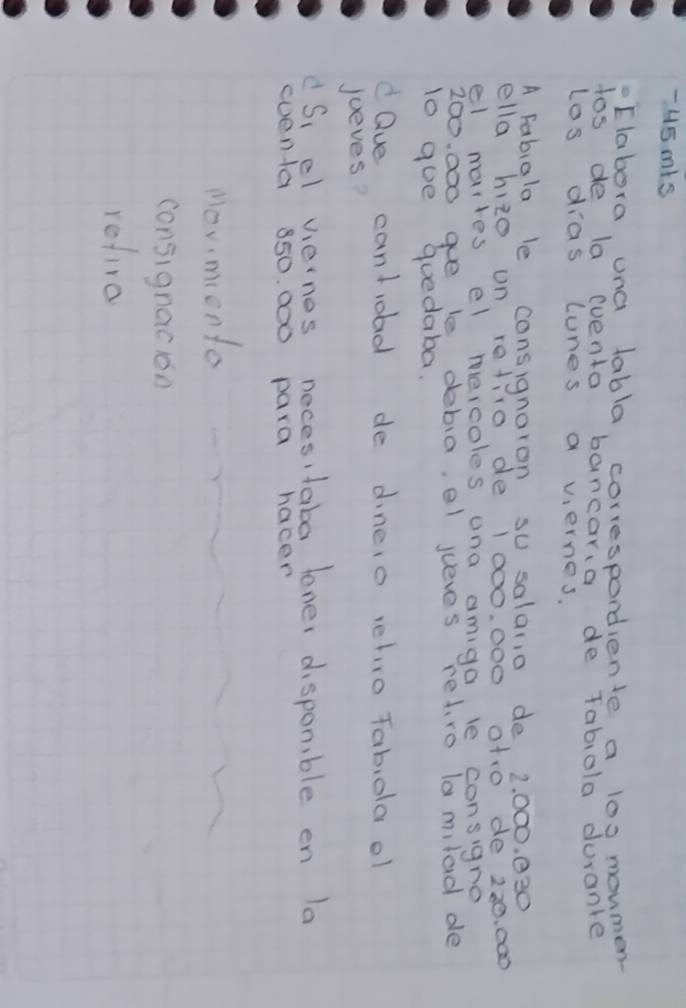 -45 mts
• Elabora una tabla correspondiente a los movimien-
tos de la cuenta bancaria de Fabiola durante
los días lunes a viernes.
A Fabiola le consignaron su salario de 2.000.030
ella hizo un retiro de 1000.000 otro de 220.000
el martes el miercoles una amiga le consigno
200.000 que le debia, el jueves retiro la mitad de
lo que quedaba.
¿Que cantidad de dinero retiro Fabiola el
jueves?
¿Si el viernes necesitaba tener disponible en la
cuenta 850.000 para hacer
Movimiento
consignación
retira